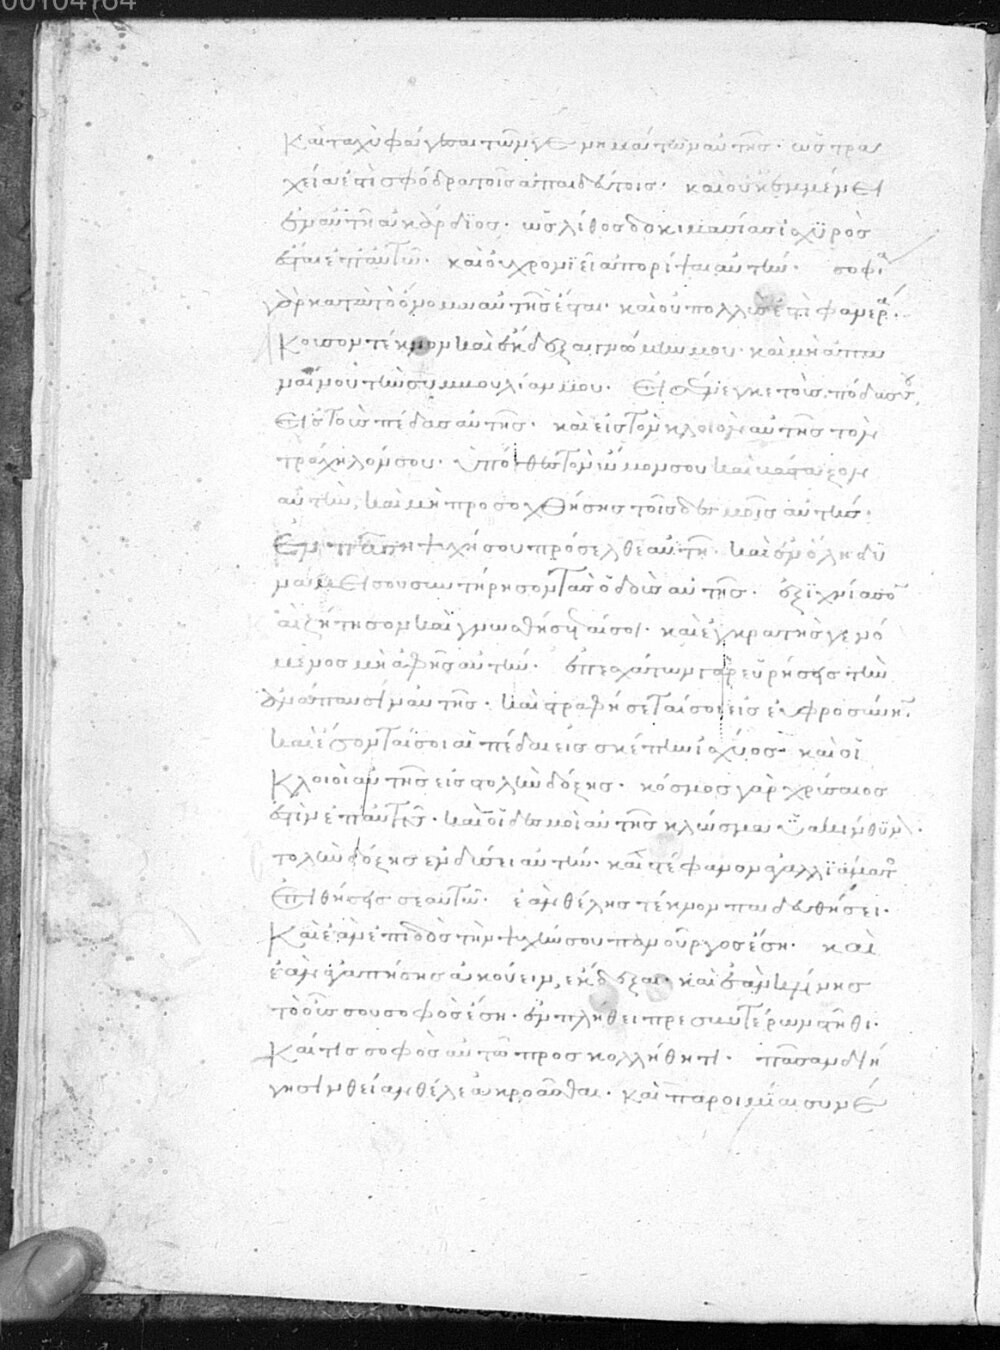 00104764
καὶ ταχὺ φάγεσαι τῶν γε νημάτων αὐτῆς· ὡς τρα
χεῖα ἐστὶ σφόδρα τοῖς ἀπαιδεύτοις· καὶ οὐκ ἐμμένει
ἐν αὐτῇ ἀκάρδιος· ὡς λίθος δοκιμασίας ἰσχυρὸς
ἔσται ἐπ' αὐτῶ· καὶ οὐ χρονιεῖ ἀπορίψαι αὐτήν· σοφία
γὰρ κατὰ τὸ ὄνομα αὐτῆς ἐστι· καὶ οὐ πολλοῖς ἐστὶ φανερά·
Ἄκουσον τέκνον καὶ ἔκδεξαι γνώμην μου· καὶ μὴ ἀπα
ναίνου τὴν συμβουλίαν μου· Εἰσένεγκε τοὺς πόδας σου
εἰς τὰς πέδας αὐτῆς· καὶ εἰς τὸν κλοιὸν αὐτῆς τὸν
τράχηλόν σου· ὑπόθες τὸν ὦμον σου καὶ βάσταξον
αὐτὴν, καὶ μὴ προσοχθήσης τοῖς δεσμοῖς αὐτῆς·
Ἐν πάση ψυχῆ σου πρόσελθε αὐτῆ· καὶ ἐν ὅλη δυ
νάμει σου συντήρησον τὰς ὁδοὺς αὐτῆς· ἐξίχνίασον
καὶ ζήτησον καὶ γνωσθήσεταί σοι· καὶ ἐγκρατὴς γενό
μενος μὴ ἀφῆς αὐτήν· ἐπ' ἐσχάτων γὰρ εὑρήσεις τὴν
ἀνάπαυσιν αὐτῆς· καὶ στραφήσεταί σοι εἰς εὐφροσύνην·
καὶ ἔσονταί σοι αἱ πέδαι εἰς σκέπην ἰσχύος· καὶ οἱ
κλοιοὶ αὐτῆς εἰς στολὴν δόξης· κόσμος γὰρ χρύσεος
ἐστὶν ἐπ' αὐτῆς· καὶ οἱ δεσμοὶ αὐτῆς κλῶσμα ὑακίνθινον·
στολὴν δόξης ἐνδύσει αὐτήν· καὶ στέφανον ἀγαλλιάματος
ἐπιθήσεις σεαυτῶ· ἐὰν θέλης τέκνον παιδευθήσει·
καὶ ἐὰν ἐπιδῶς τὴν ψυχήν σου πανοῦργος ἔση· καὶ
ἐὰν ἀγαπήσης ἀκούειν, ἐκδέξαι· καὶ ἐὰν κλίνης
τὸ οὖς σου σοφὸς ἔση· ἐν πλήθει πρεσβυτέρων στῆθι·
καὶ τίς σοφὸς αὐτῶ προσκολλήθητι· πᾶσαν διή
γησιν θείαν θέλε ἀκροᾶσθαι· καὶ παροιμίαι συνέ